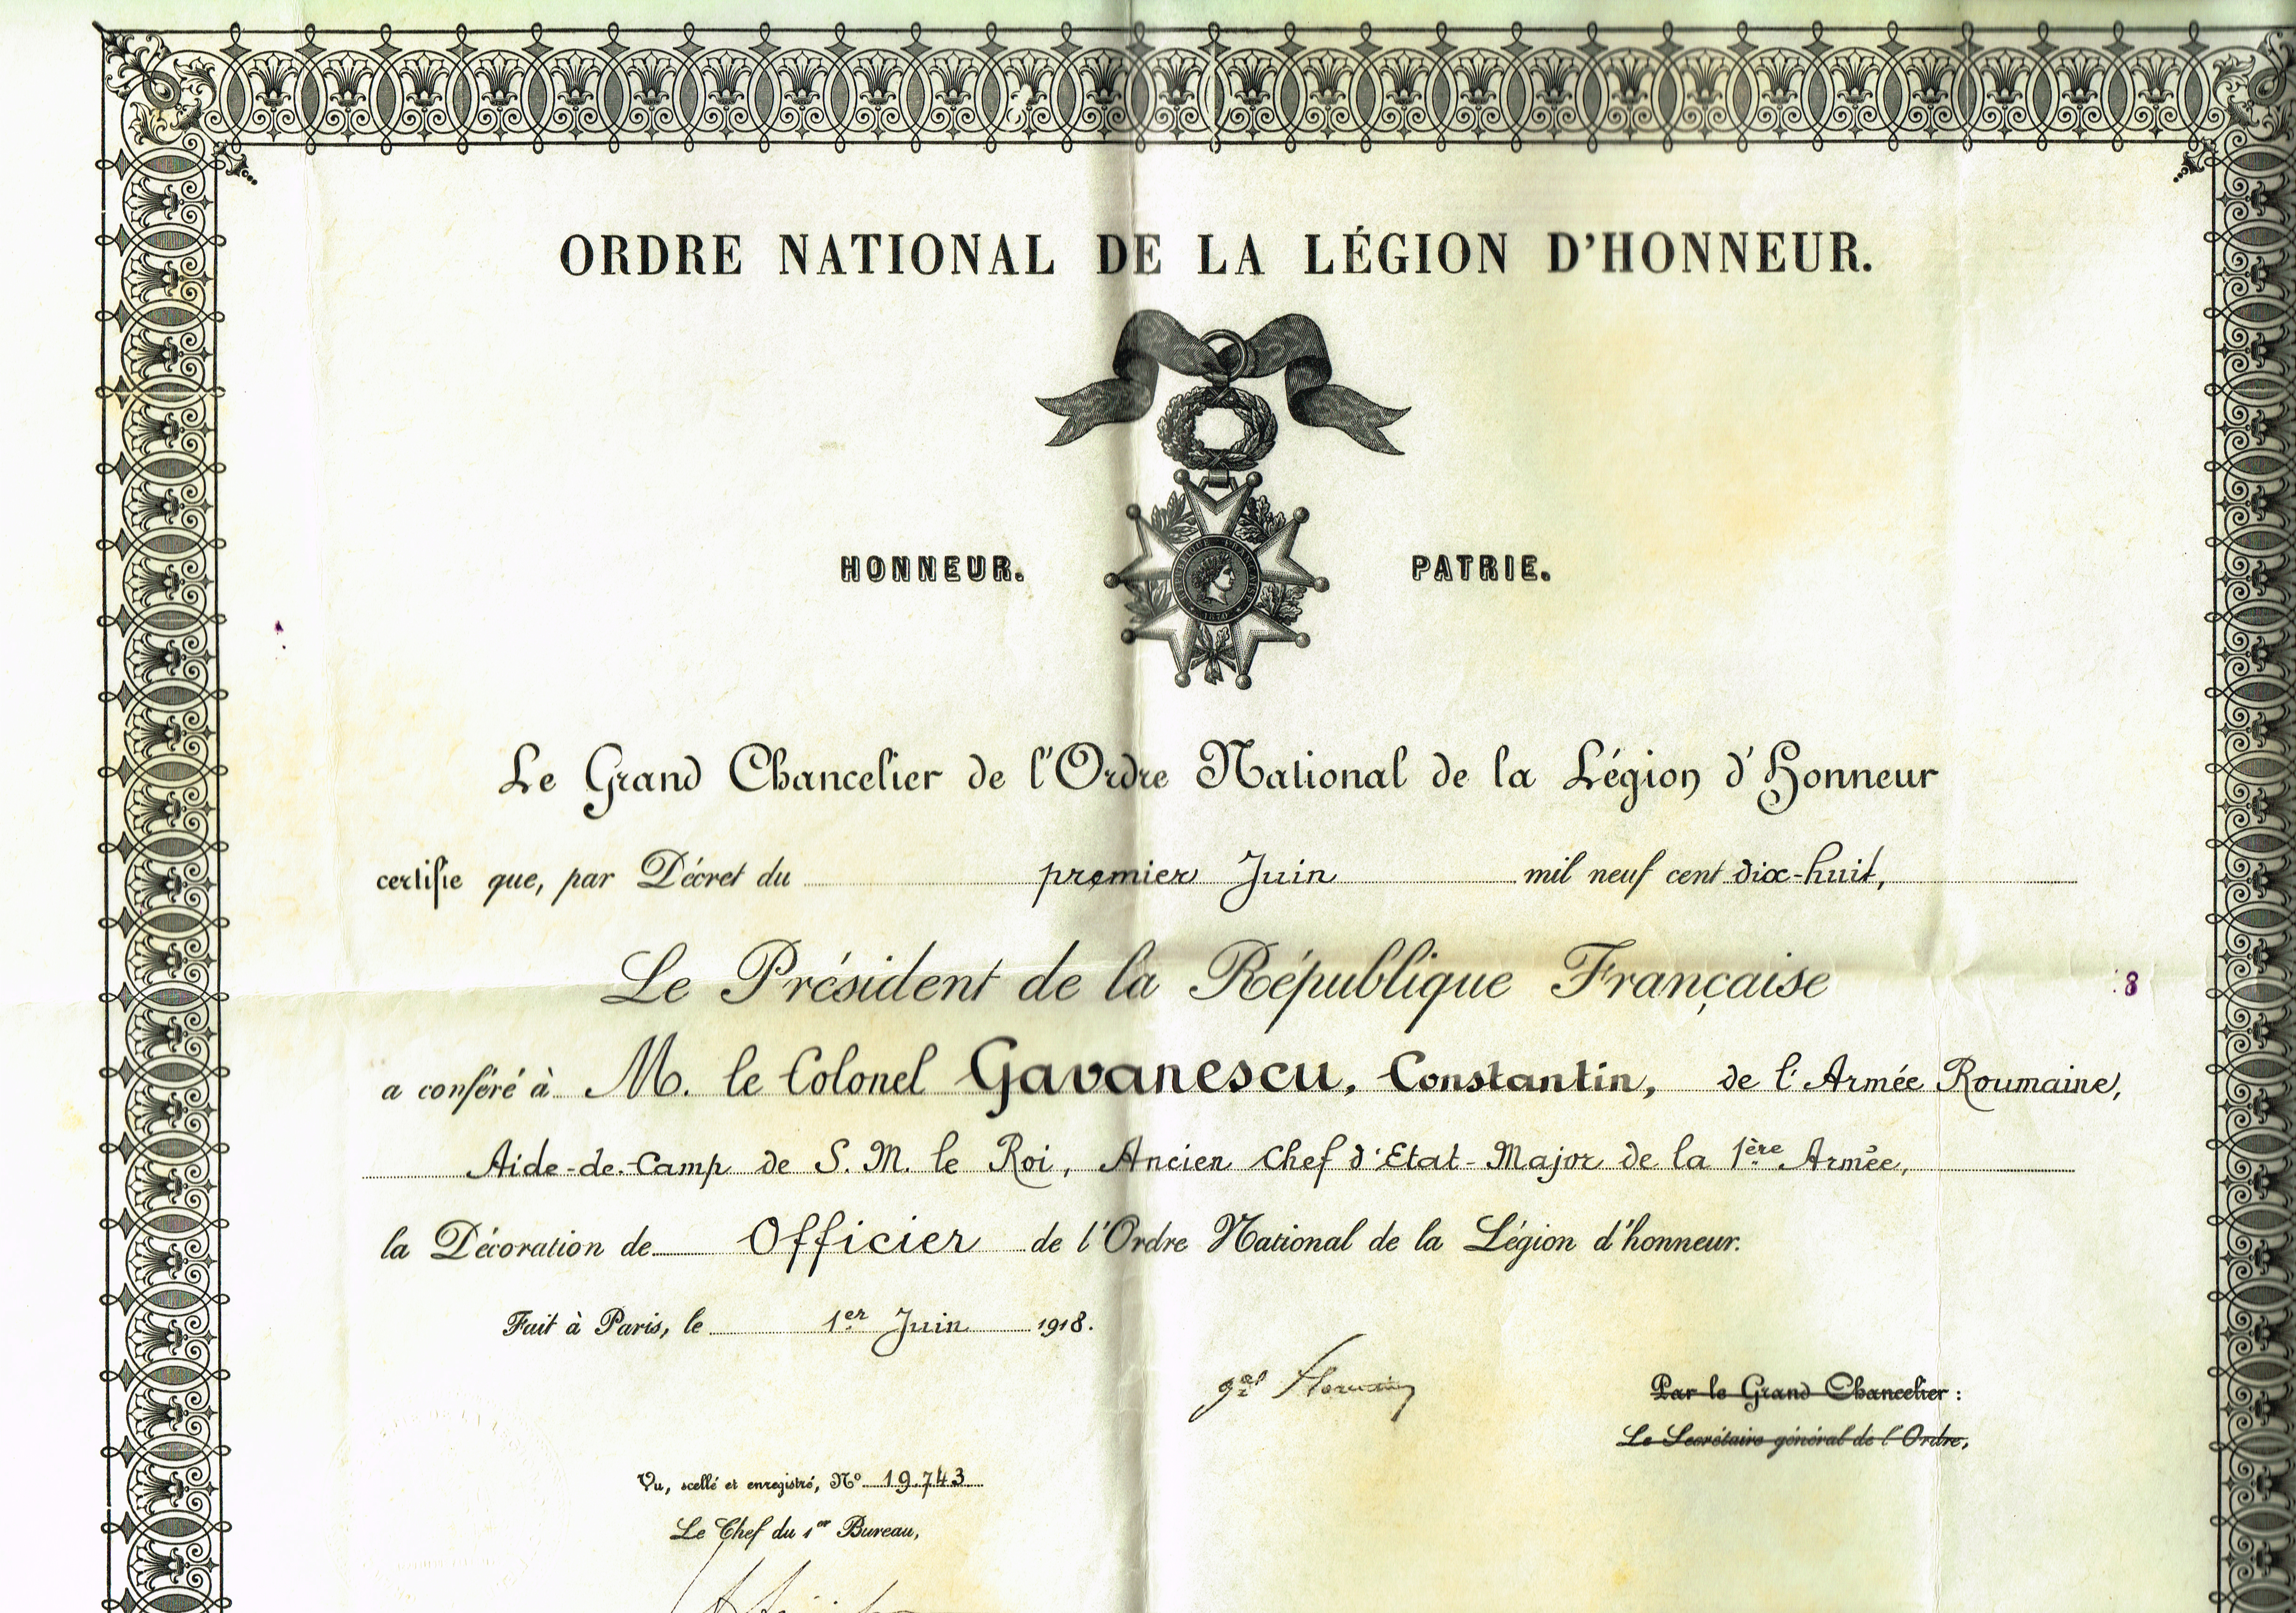 ORDRE NATIONAL DE LA LÉGION D'HONNEUR.
HONNEUR. PATRIE.
Le Grand Chancelier de l'Ordre National de la Légion d'Honneur
certifie que, par Décret du premier Juin mil neuf cent dix-huit,
Le Président de la République Française
8
a conféré à M. le Colonel Gavanescu, Constantin, de l'Armée Roumaine,
Aide-de-Camp de S. M. le Roi, Ancien Chef d'Etat-Major de la 1ère Armée,
la Décoration de Officier de l'Ordre National de la Légion d'honneur.
Fait à Paris, le 1er Juin 1918.
gal
Par le Grand Chancelier :
Le Secrétaire général de l'Ordre,
Vu, scellé et enregistré, No 19.743
Le Chef du 1er Bureau,